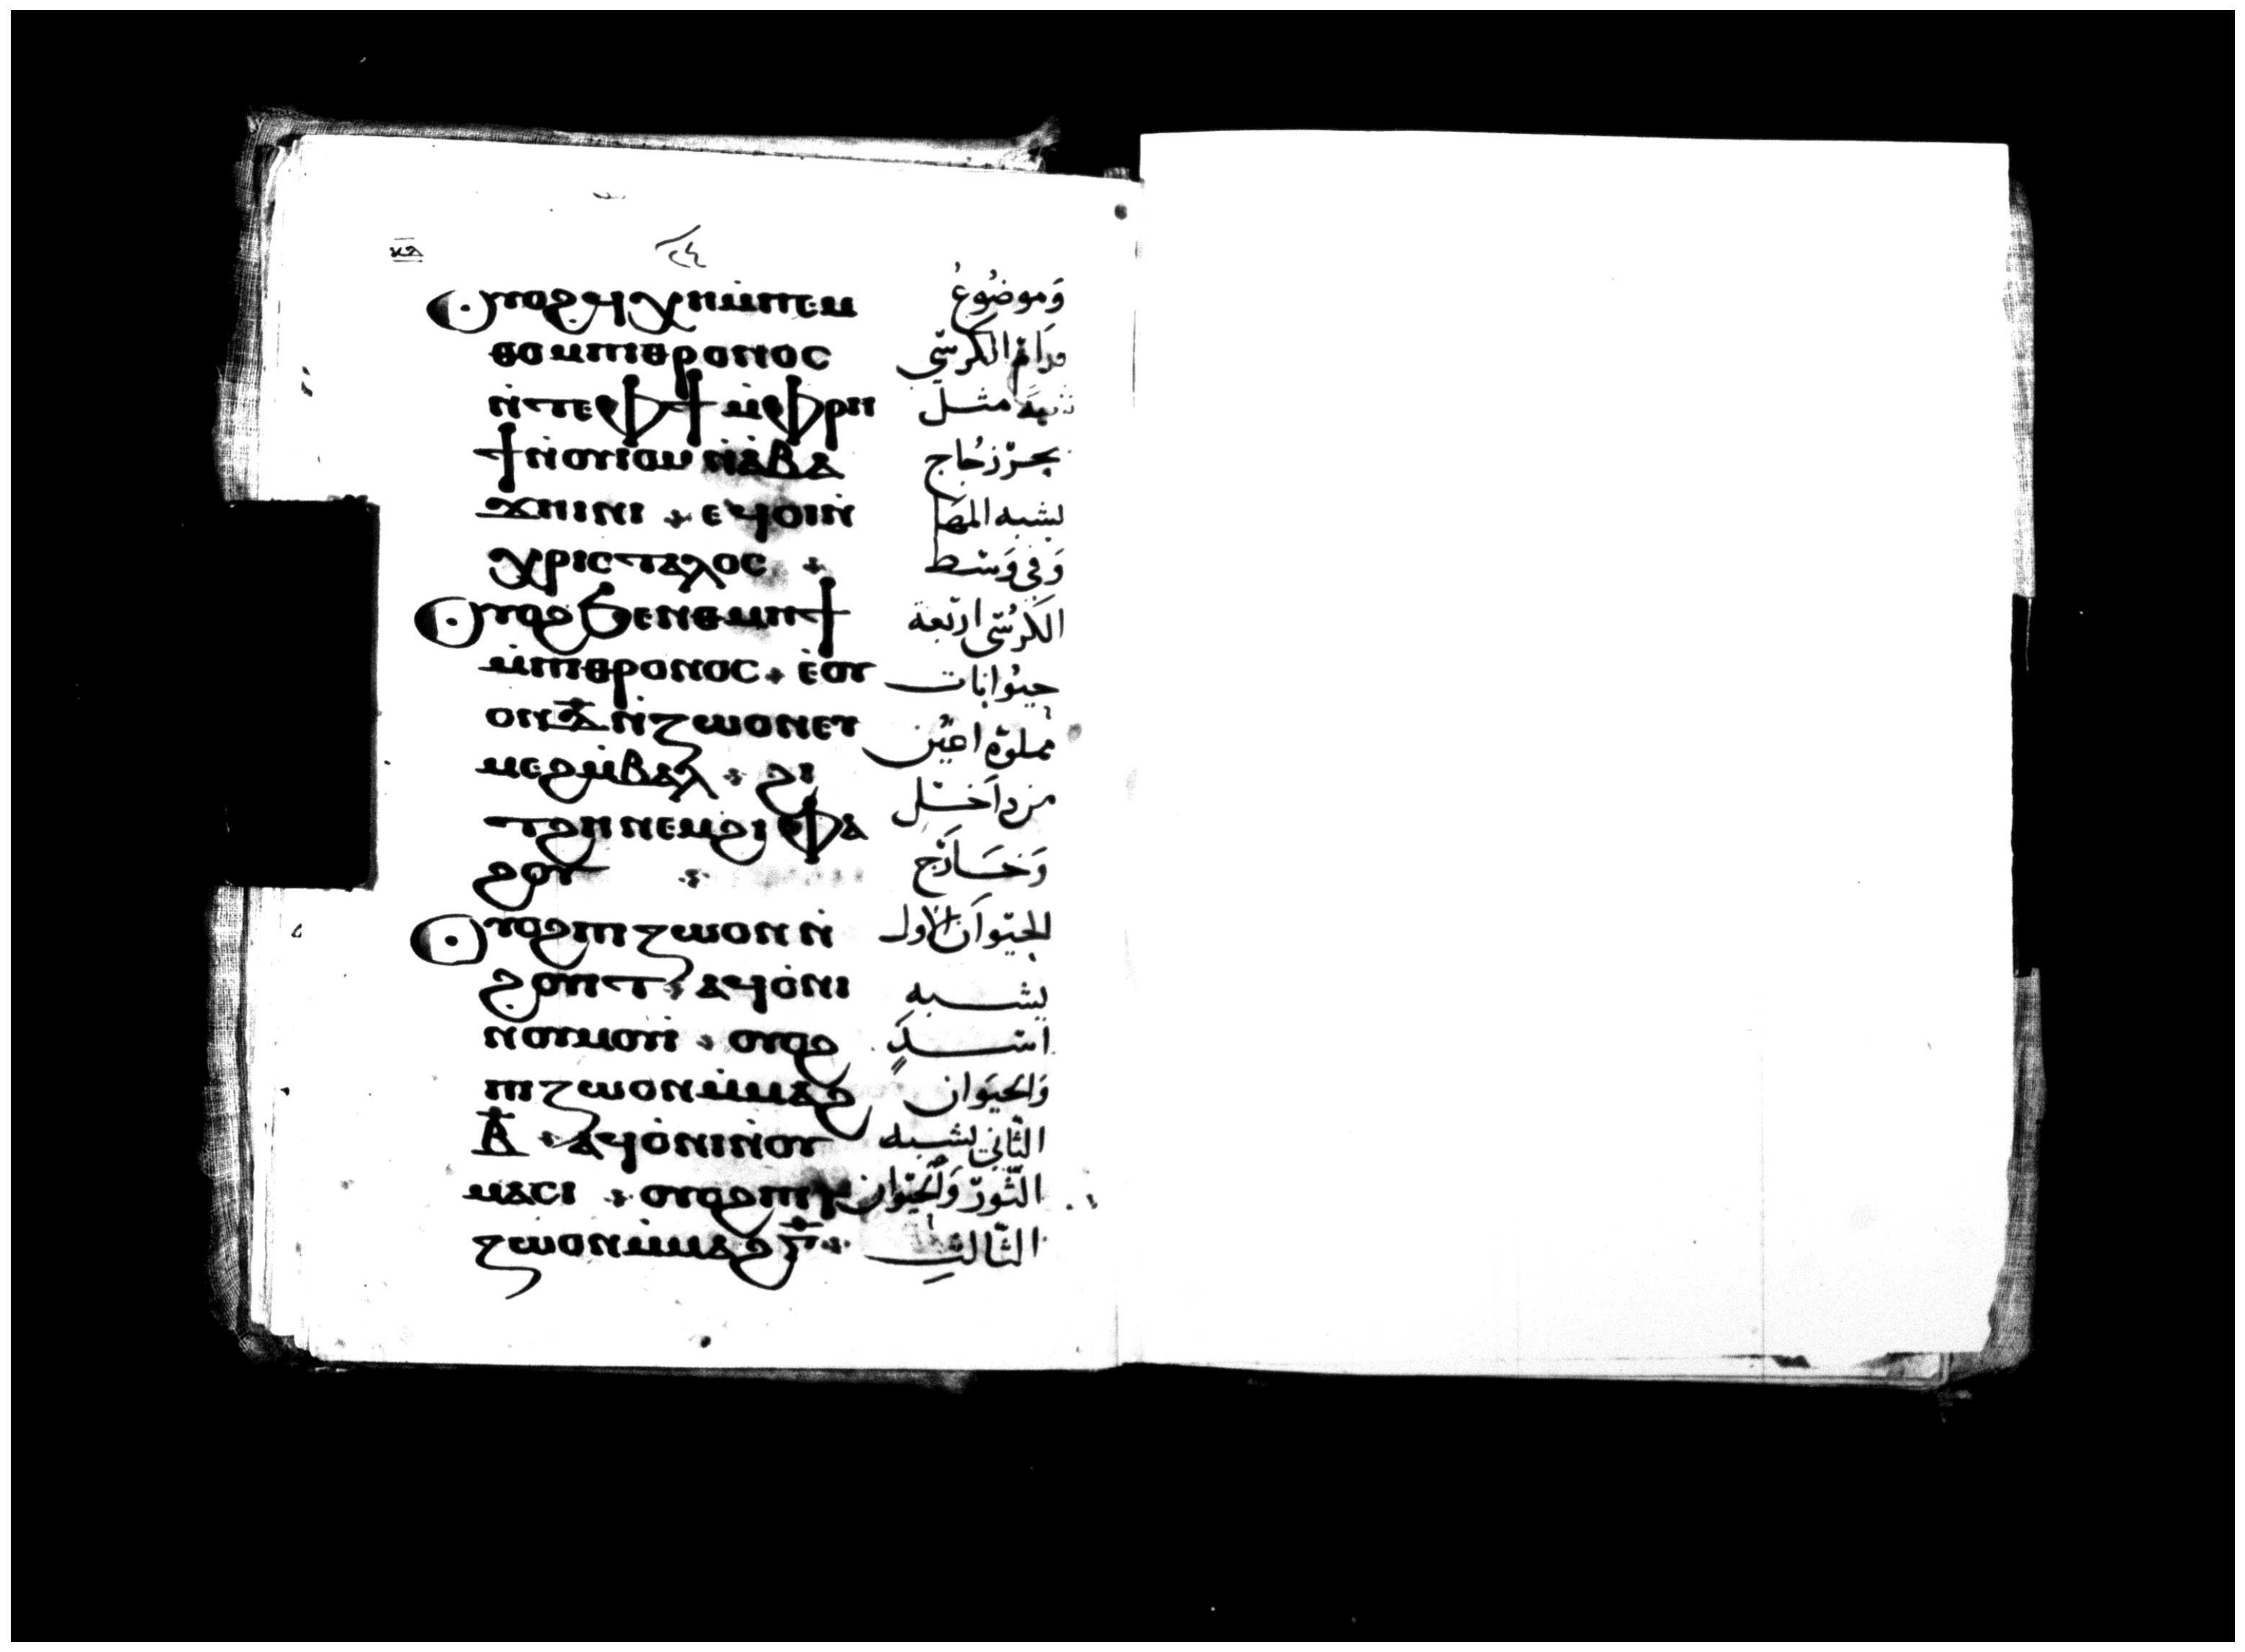 ⲕ̅ⲇ̅
٢٤
ⲟⲩⲟϩ ϥⲭⲏ ⲙ̇ⲡⲉⲙ
ⲑⲟ ⲙⲡⲓⲑⲣⲟⲛⲟⲥ
ⲛ̇ⲧⲉ ⲫϯ ⲙ̇ⲫⲣⲏ
ϯ ⲛ̇ⲟⲩⲓⲟⲙ ⲛ̇ⲁⲃⲁ
ϫⲏⲓⲛⲓ ⲉϥⲟⲓ ⲛ̇
ⲭⲣⲓⲥⲧⲁⲗⲟⲥ
ⲟⲩⲟϩ ϧⲉⲛ ⲑⲙⲏϯ
ⲙ̇ⲡⲓⲑⲣⲟⲛⲟⲥ ⲉ̇ⲟⲩ
ⲟⲛ ⲇ̅ ⲛ̇ⲍⲱⲟⲛ ⲉⲩ
ⲙⲉϩ ⲙ̇ⲃⲁⲗ ϩⲓ
ⲧϩⲏ ⲛⲉⲙ ϩⲓ ⲫⲁ
ϩⲟⲩ
ⲟⲩⲟϩ ⲡⲓⲍⲱⲟⲛ ⲛ̇
ϩⲟⲩⲓⲧ ⲁϥⲟ̇ⲛⲓ
ⲛⲟⲩⲙⲟⲩⲓ̇ ⲟⲩⲟϩ
ⲡⲓⲍⲱⲟⲛ ⲙ̇ⲙⲁϩ
ⲃ̅ ⲁϥⲟ̇ⲛⲓ ⲛ̇ⲟⲩ
ⲙⲁⲥⲓ ⲟⲩⲟϩ ⲡⲓ
ⲍⲱⲟⲛ ⲙ̇ⲙⲁϩ ⲅ̅
وَموضُوعُ
الكرسّي
مثل
بحرّ زجُاج
يشبه المها
وَفي وَسْط
الكرُسّي اربّعة
حيوُانات
مملوّه اعيُن
من داَخل
وَخَارَج
الحيّواَن الاول
يشبه
اسَدٍ
وَالحيَوان
الثّاني يشبه
الثّورّ وَالحيّوان
الثّالثِ